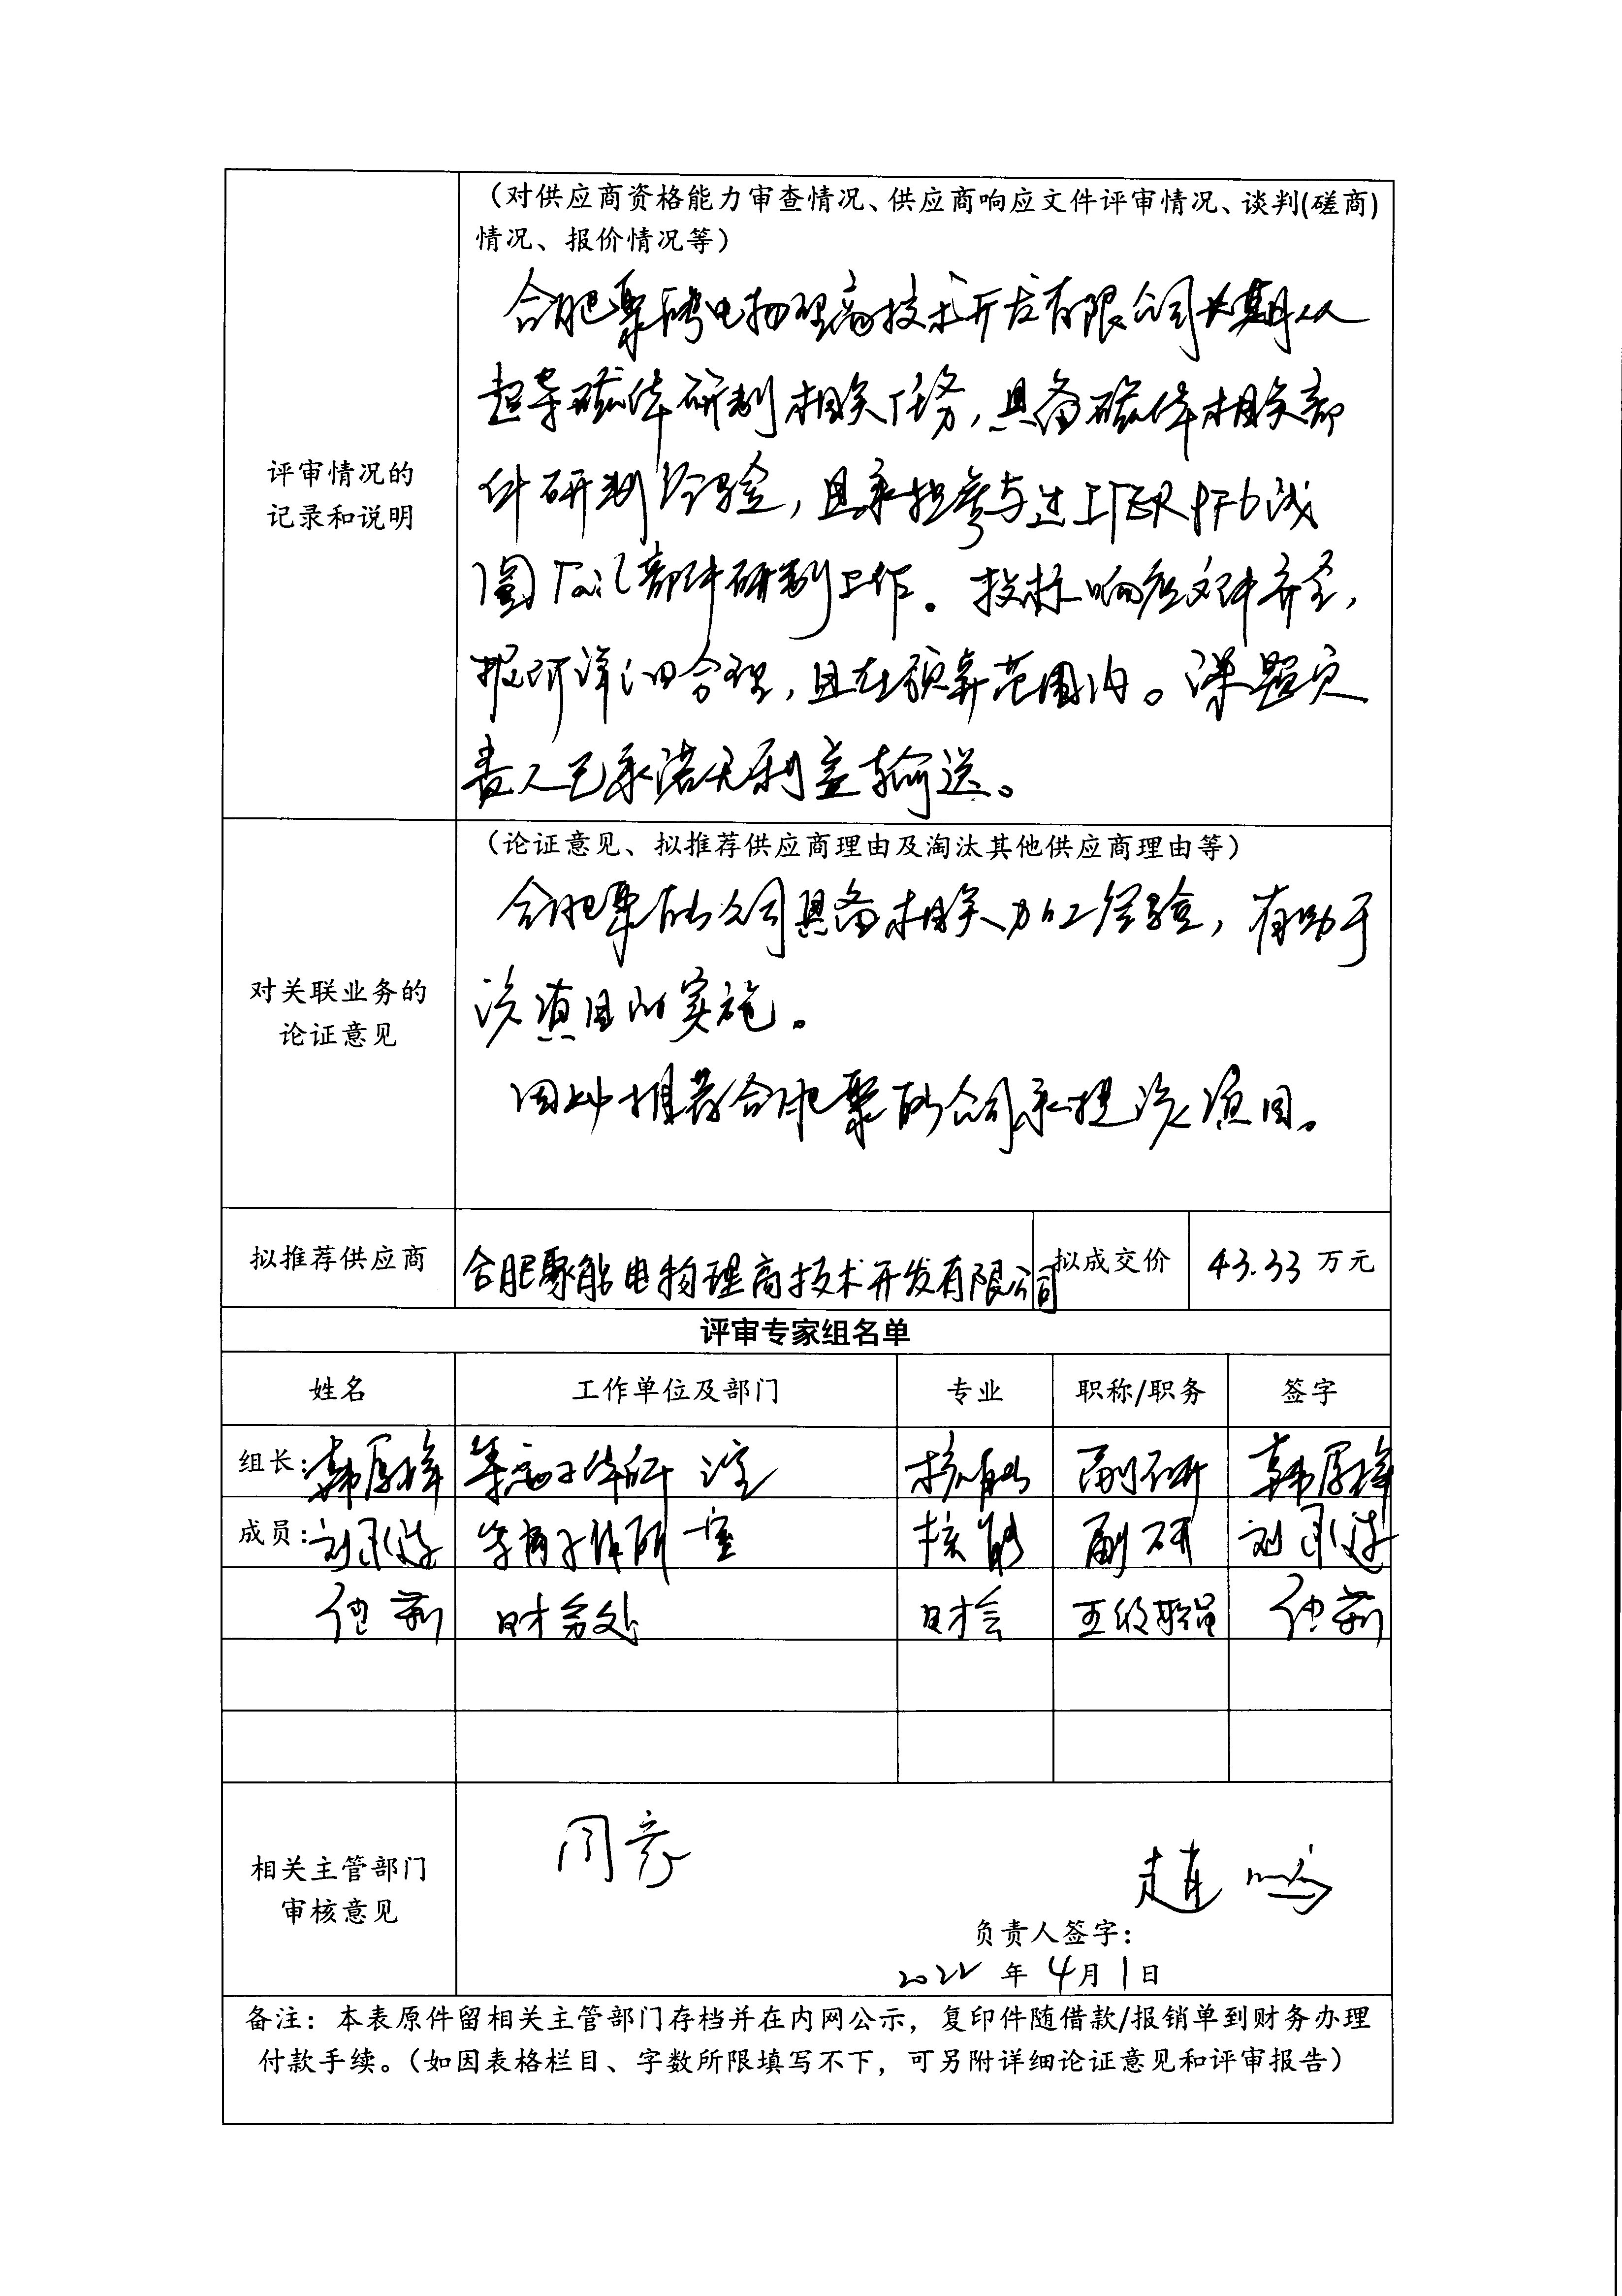 （对供应商资格能力审查情况、供应商响应文件评审情况、谈判(磋商)
情况、报价情况等）
评审情况的
记录和说明
合肥聚能电物理高技术开发有限公司长期从
超导磁体研制相关任务，具备磁体相关部
件研制经验，且承担参与过ITER PF6线
圈Tail部件研制工作。投标响应文件齐全，
报价详细合理，且在预算范围内。课题负
责人已承诺无利益输送。
（论证意见、拟推荐供应商理由及淘汰其他供应商理由等）
对关联业务的
论证意见
合肥聚能公司具备相关加工经验，有助于
该项目的实施。
因此推荐合肥聚能公司承担该项目。
拟推荐供应商 合肥聚能电物理高技术开发有限公司 拟成交价 43.33 万元
评审专家组名单
姓名 工作单位及部门 专业 职称/职务 签字
组长：韩厚祥 等离子体所 核能 副研 韩厚祥
成员：刘 等离子体所 一室 核能 副研 刘
财务处 财会 五级职员
相关主管部门
审核意见
同意
赵
负责人签字：
2022 年 4月 1日
备注：本表原件留相关主管部门存档并在内网公示，复印件随借款/报销单到财务办理
付款手续。（如因表格栏目、字数所限填写不下，可另附详细论证意见和评审报告）